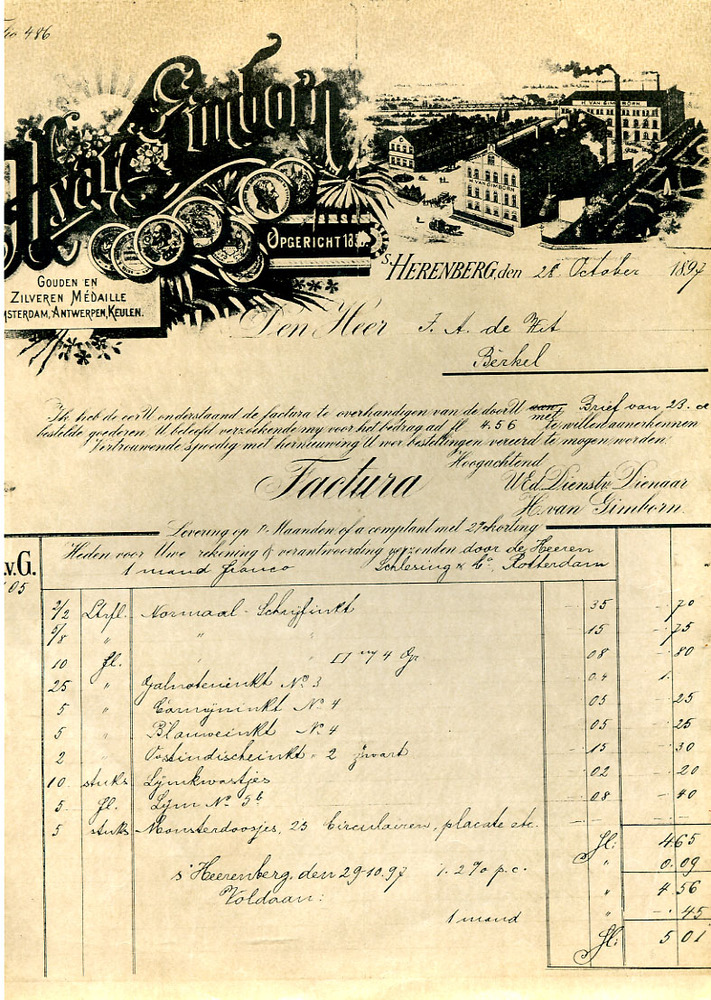 486
H. van Gimborn
H. VAN GIMBORN
H. VAN GIMBORN
OPGERICHT 18
GOUDEN EN
ZILVEREN MÉDAILLE
MSTERDAM, ANTWERPEN, KEULEN.
'sHERENBERG, den 28 October 1897
Den Heer J. A. de Wit
Berkel
Ik heb de eer U onderstaand de factura te overhandigen van de door U aan met Brief van 23. c
bestelde goederen, U beleefd verzoekende my voor het bedrag ad fl 4.56 te willen aanerkennen
Vertrouwende spoedig met hernieuwing Uwer bestellingen vereerd te mogen worden.
Hoogachtend
Factura
UEd. Dienstv. Dienaar
H. van Gimborn.
Levering op Maanden of a comptant met 2% korting
v.G.
05
Heden voor Uwe rekening & verantwoording verzonden door de Heeren
1 mand franco Schlesing & Co, Rotterdam
2/2 Ltrfl. Normaal-Schrijfinkt 35 70
5/8 " " " 15 75
10 fl. " " II 4 08 80
25 " Galnoteninkt No 3 04 1.
5 " Carmijninkt No 4 05 25
5 " Blauweinkt No 4 05 25
2 " Oostindischeinkt 2 zwart 15 30
10 stuks Lijmkwastjes 02 20
5 fl. Lijm No 5b 08 40
5 stuks Monsterdoosjes, 25 Circulairen, placate etc.
fl: 4 65
s'Heerenberg, den 29-10.97 1. 2% p.c. " 0.09
Voldaan: " 4 56
1 mand " -. 45
fl: 5 01